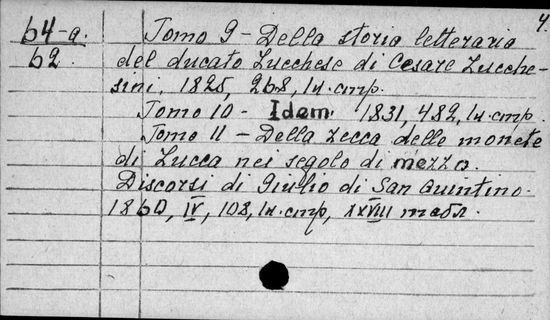 4.
64-a. Tomo 9 - Della storia letteraria
62. del ducato Lucchese di Cesare Lucche-
sini, 1825, 268, 1н.стр.
Tomo 10 - Idem. 1831, 482, 1н.стр.
Tomo 11 - Della zecca delle monete
di Lucca nei segolo di mezzo.
Discorsi di Giulio di San Quintino.
1860, IV, 108, 1н.стр, XXVIII табл.